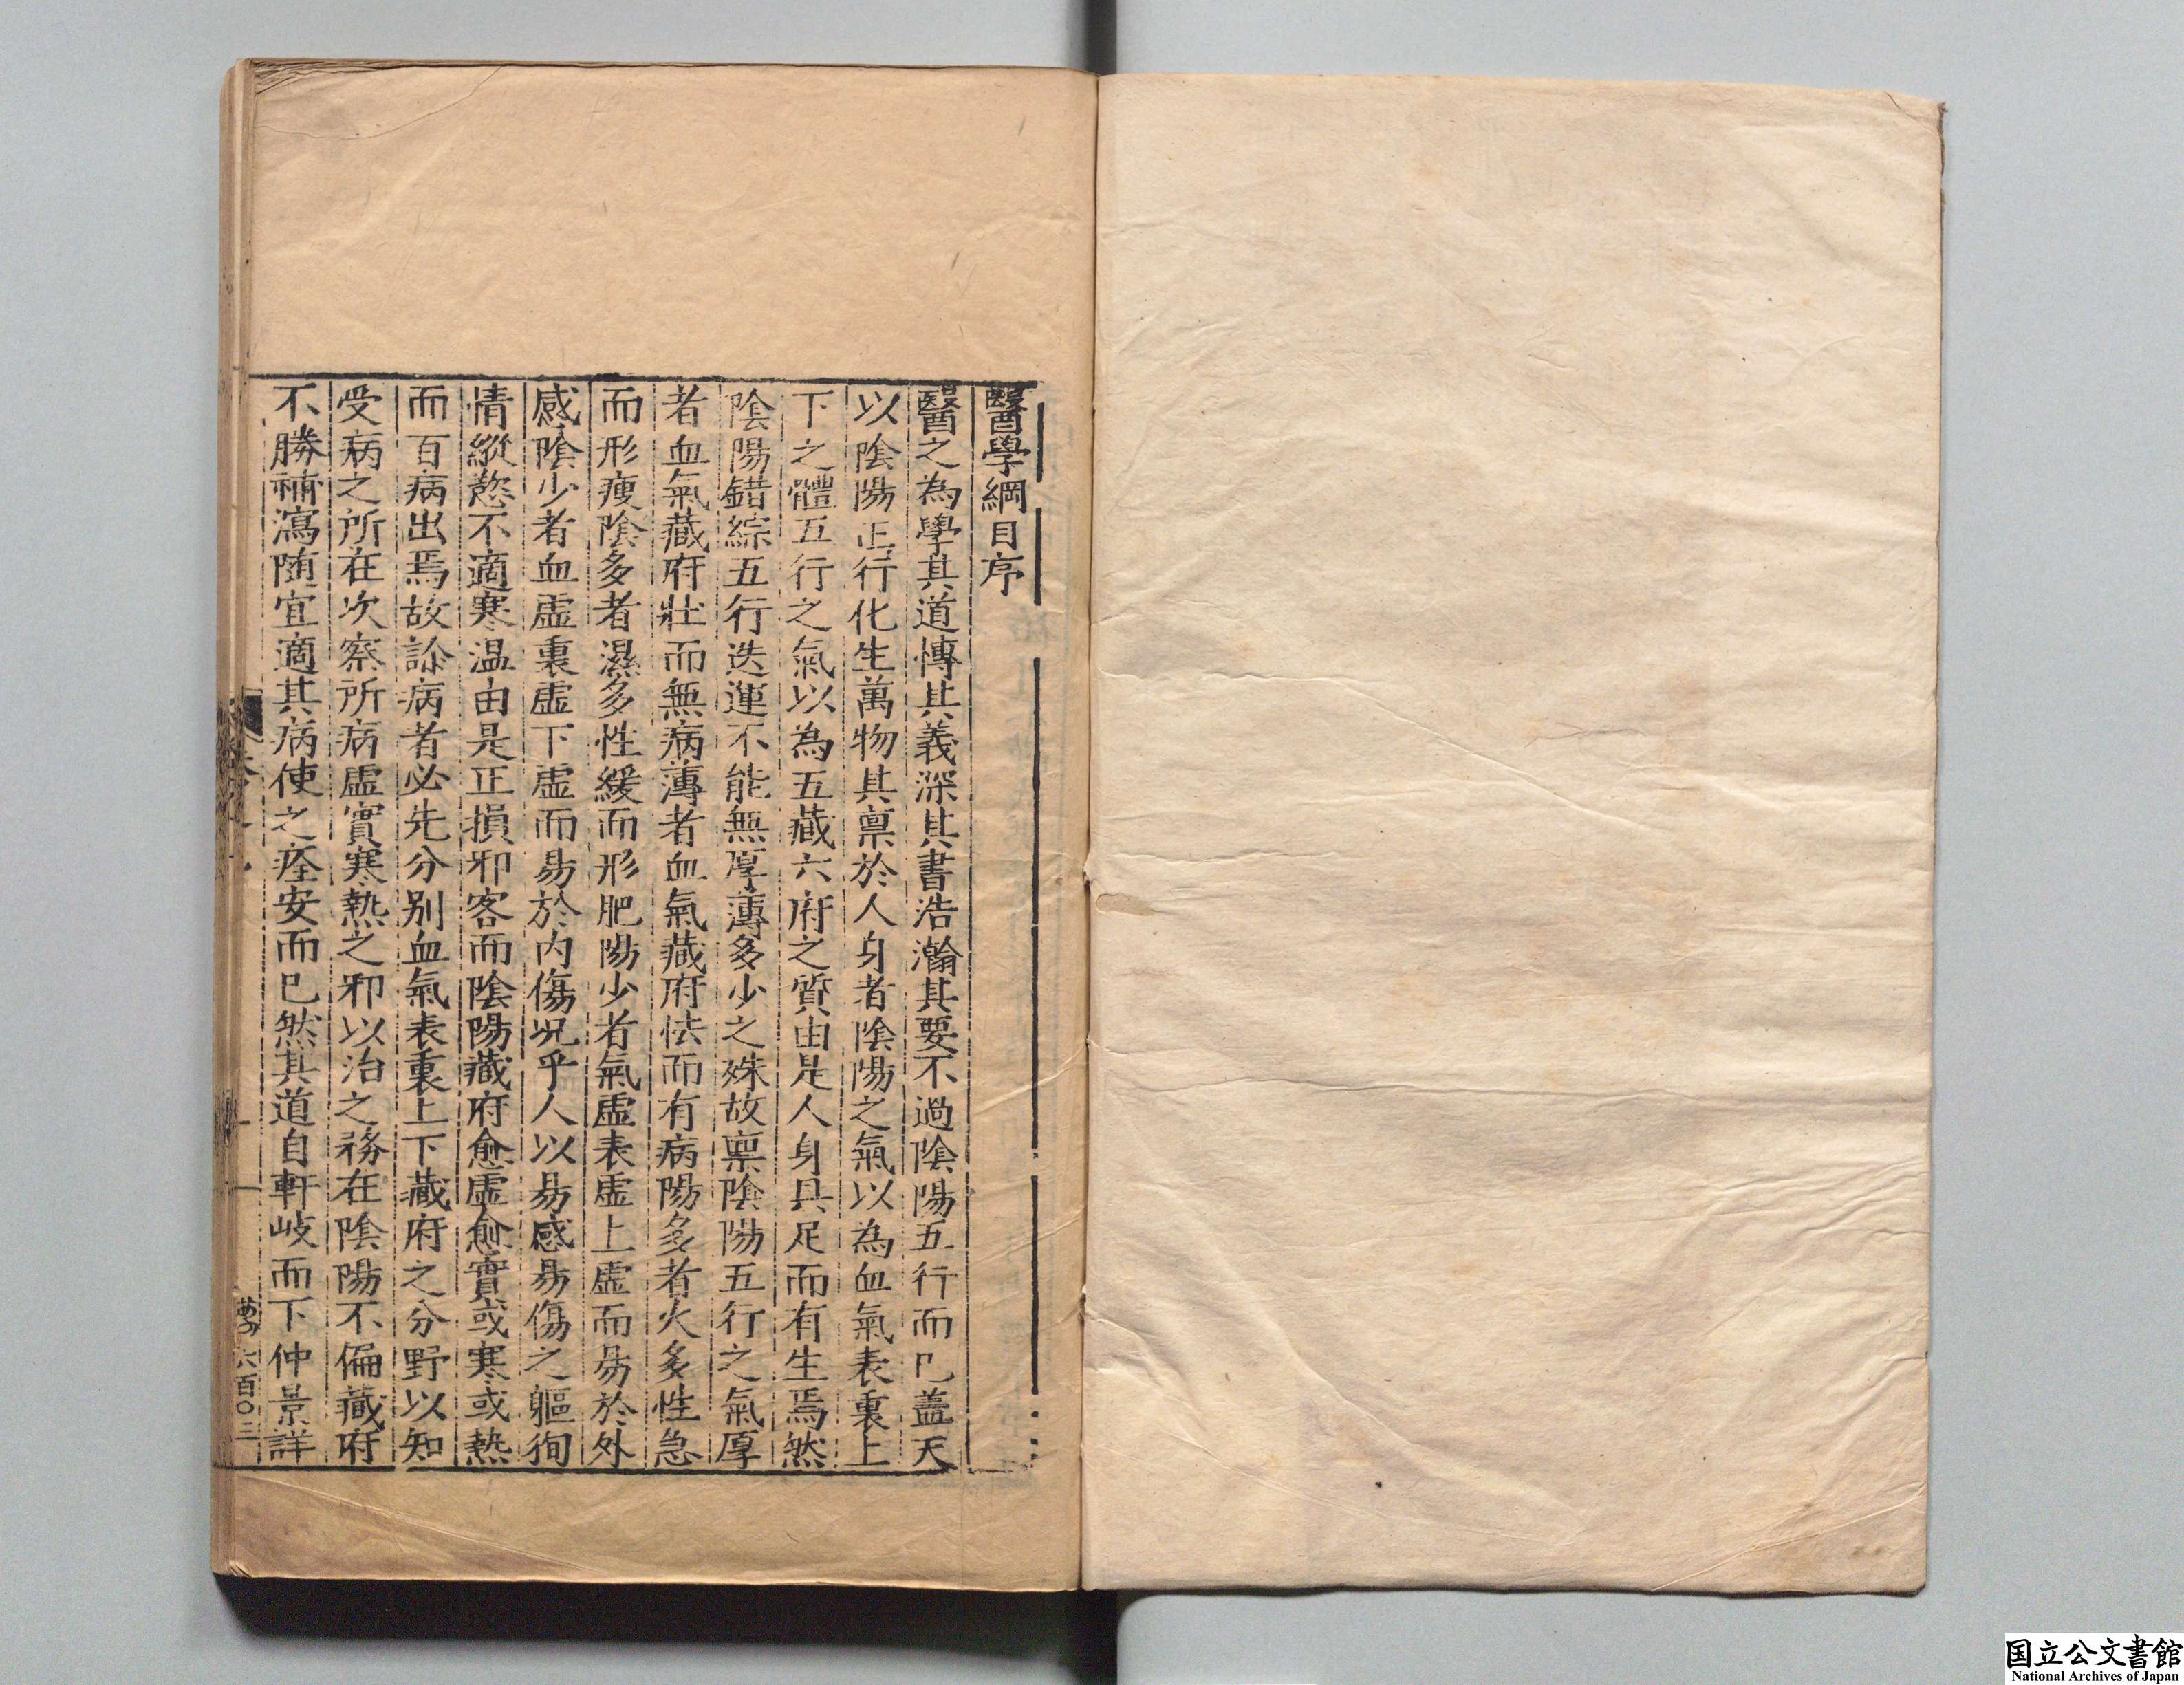 醫學綱目序
醫之為學其道博其義深其書浩瀚其要不過陰陽五行而已蓋天
以陰陽五行化生萬物其稟於人身者陰陽之氣以為血氣表裏上
下之體五行之氣以為五藏六府之質由是人身具足而有生焉然
陰陽錯綜五行迭運不能無厚薄多少之殊故稟陰陽五行之氣厚
者血氣藏府壯而無病薄者血氣藏府怯而有病陽多者火多性急
而形瘦陰多者濕多性緩而形肥陽少者氣虛表虛上虛而易於外
感陰少者血虛裏虛下虛而易於內傷况乎人以易感易傷之軀徇
情縱慾不適寒温由是正損邪客而陰陽藏府愈虛愈實或寒或熱
而百病出焉故診病者必先分别血氣表裏上下藏府之分野以知
受病之所在次察所病虛實寒熱之邪以治之務在陰陽不偏藏府
不勝補瀉随宜適其病使之痊安而已然其道自軒岐而下仲景詳
六百〇三
国立公文書館
National Archives of Japan